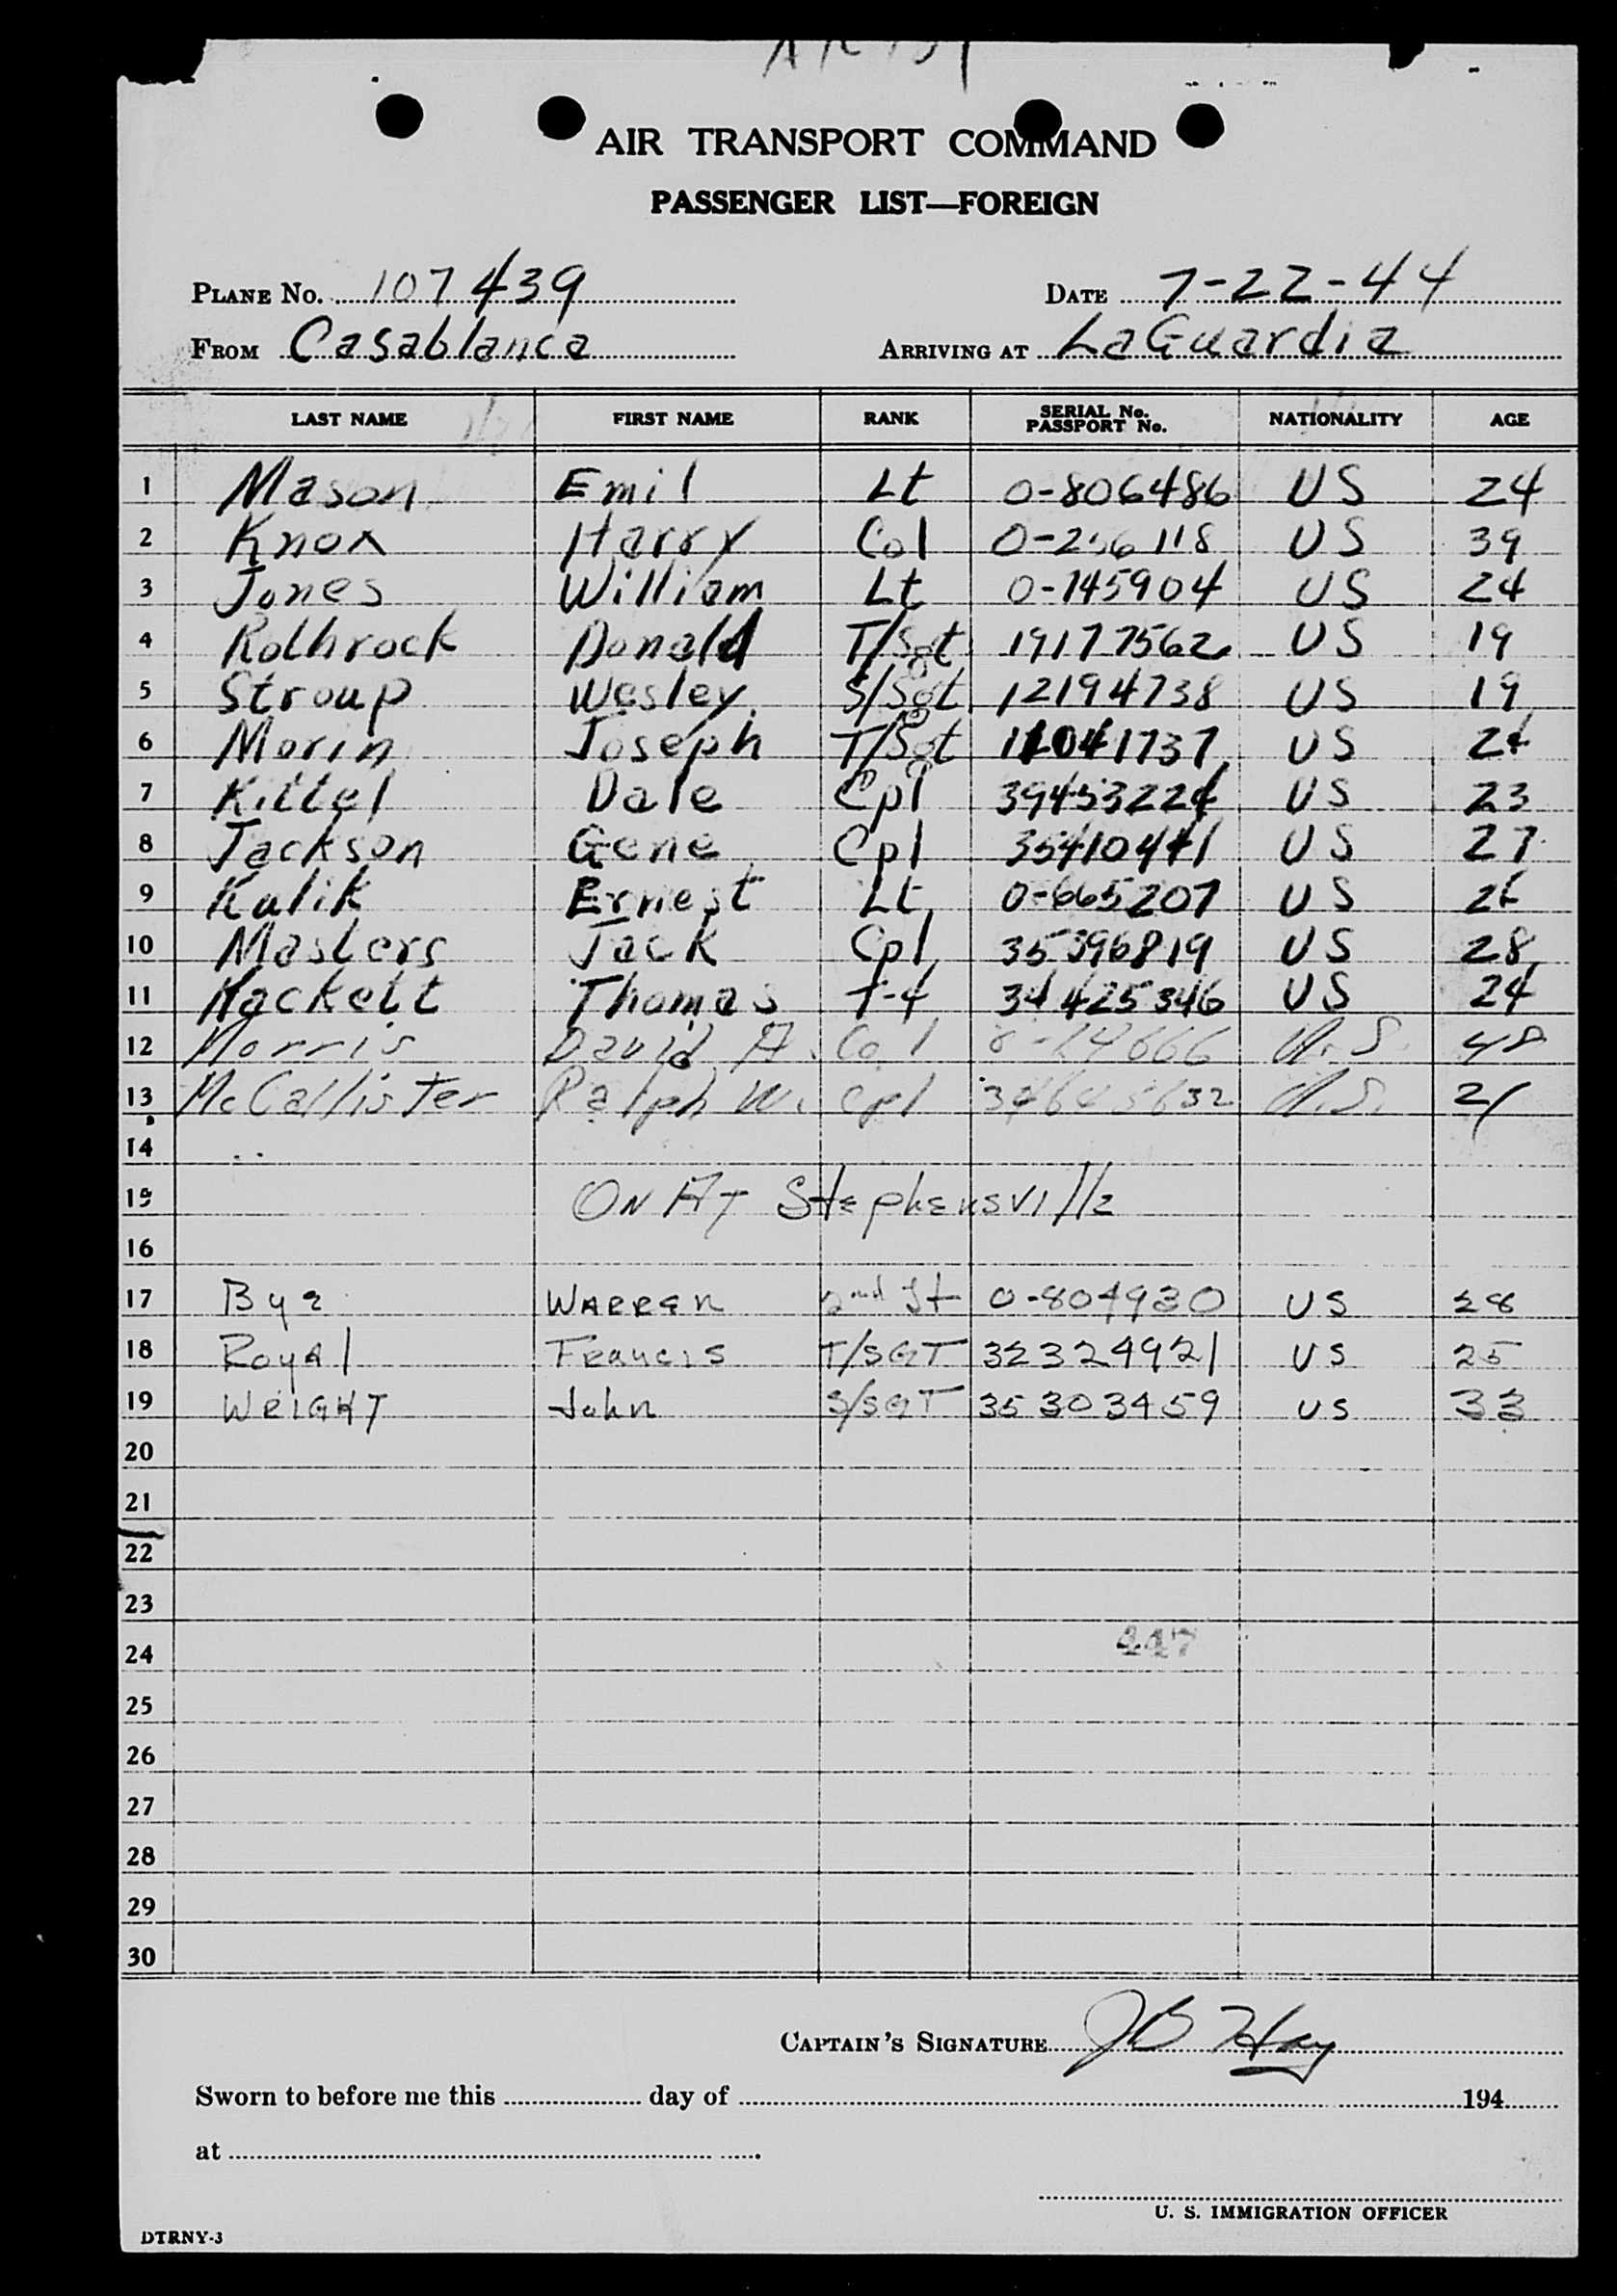 AIR TRANSPORT COMMAND
PASSENGER LIST—FOREIGN
PLANE No. 107439 DATE 7-22-44
FROM Casablanca ARRIVING AT LaGuardia
LAST NAME FIRST NAME RANK SERIAL No. PASSPORT No. NATIONALITY AGE
1 Mason Emil Lt 0-806486 US 24
2 Knox Harry Col US 39
3 Jones William Lt 0-745904 US 24
4 Rothrock Donald T/Sgt 19177562 US 19
5 Stroup Wesley S/Sgt 12194738 US 19
6 Morin Joseph T/Sgt 11041737 US 24
7 Kittel Dale Cpl 39453224 US 23
8 Jackson Gene Cpl 35410441 US 27
9 Kulik Ernest Lt 0-665207 US
10 Masters Jack Cpl 35396819 US 28
11 Hackett Thomas T-4 34425346 US 24
12 Morris David A. Col U.S. 48
13 McCallister Ralph W. Cpl U.S. 21
14
15 ON AT Stephensville
16
17 Bye WARREN 2nd Lt 0-804930 US 28
18 Royal Francis T/SGT 32324921 US 25
19 WRIGHT John S/SGT 35303459 US 33
20
21
22
23
24 447
25
26
27
28
29
30
CAPTAIN'S SIGNATURE JB Hay
Sworn to before me this day of 194
at
U. S. IMMIGRATION OFFICER
DTRNY-3